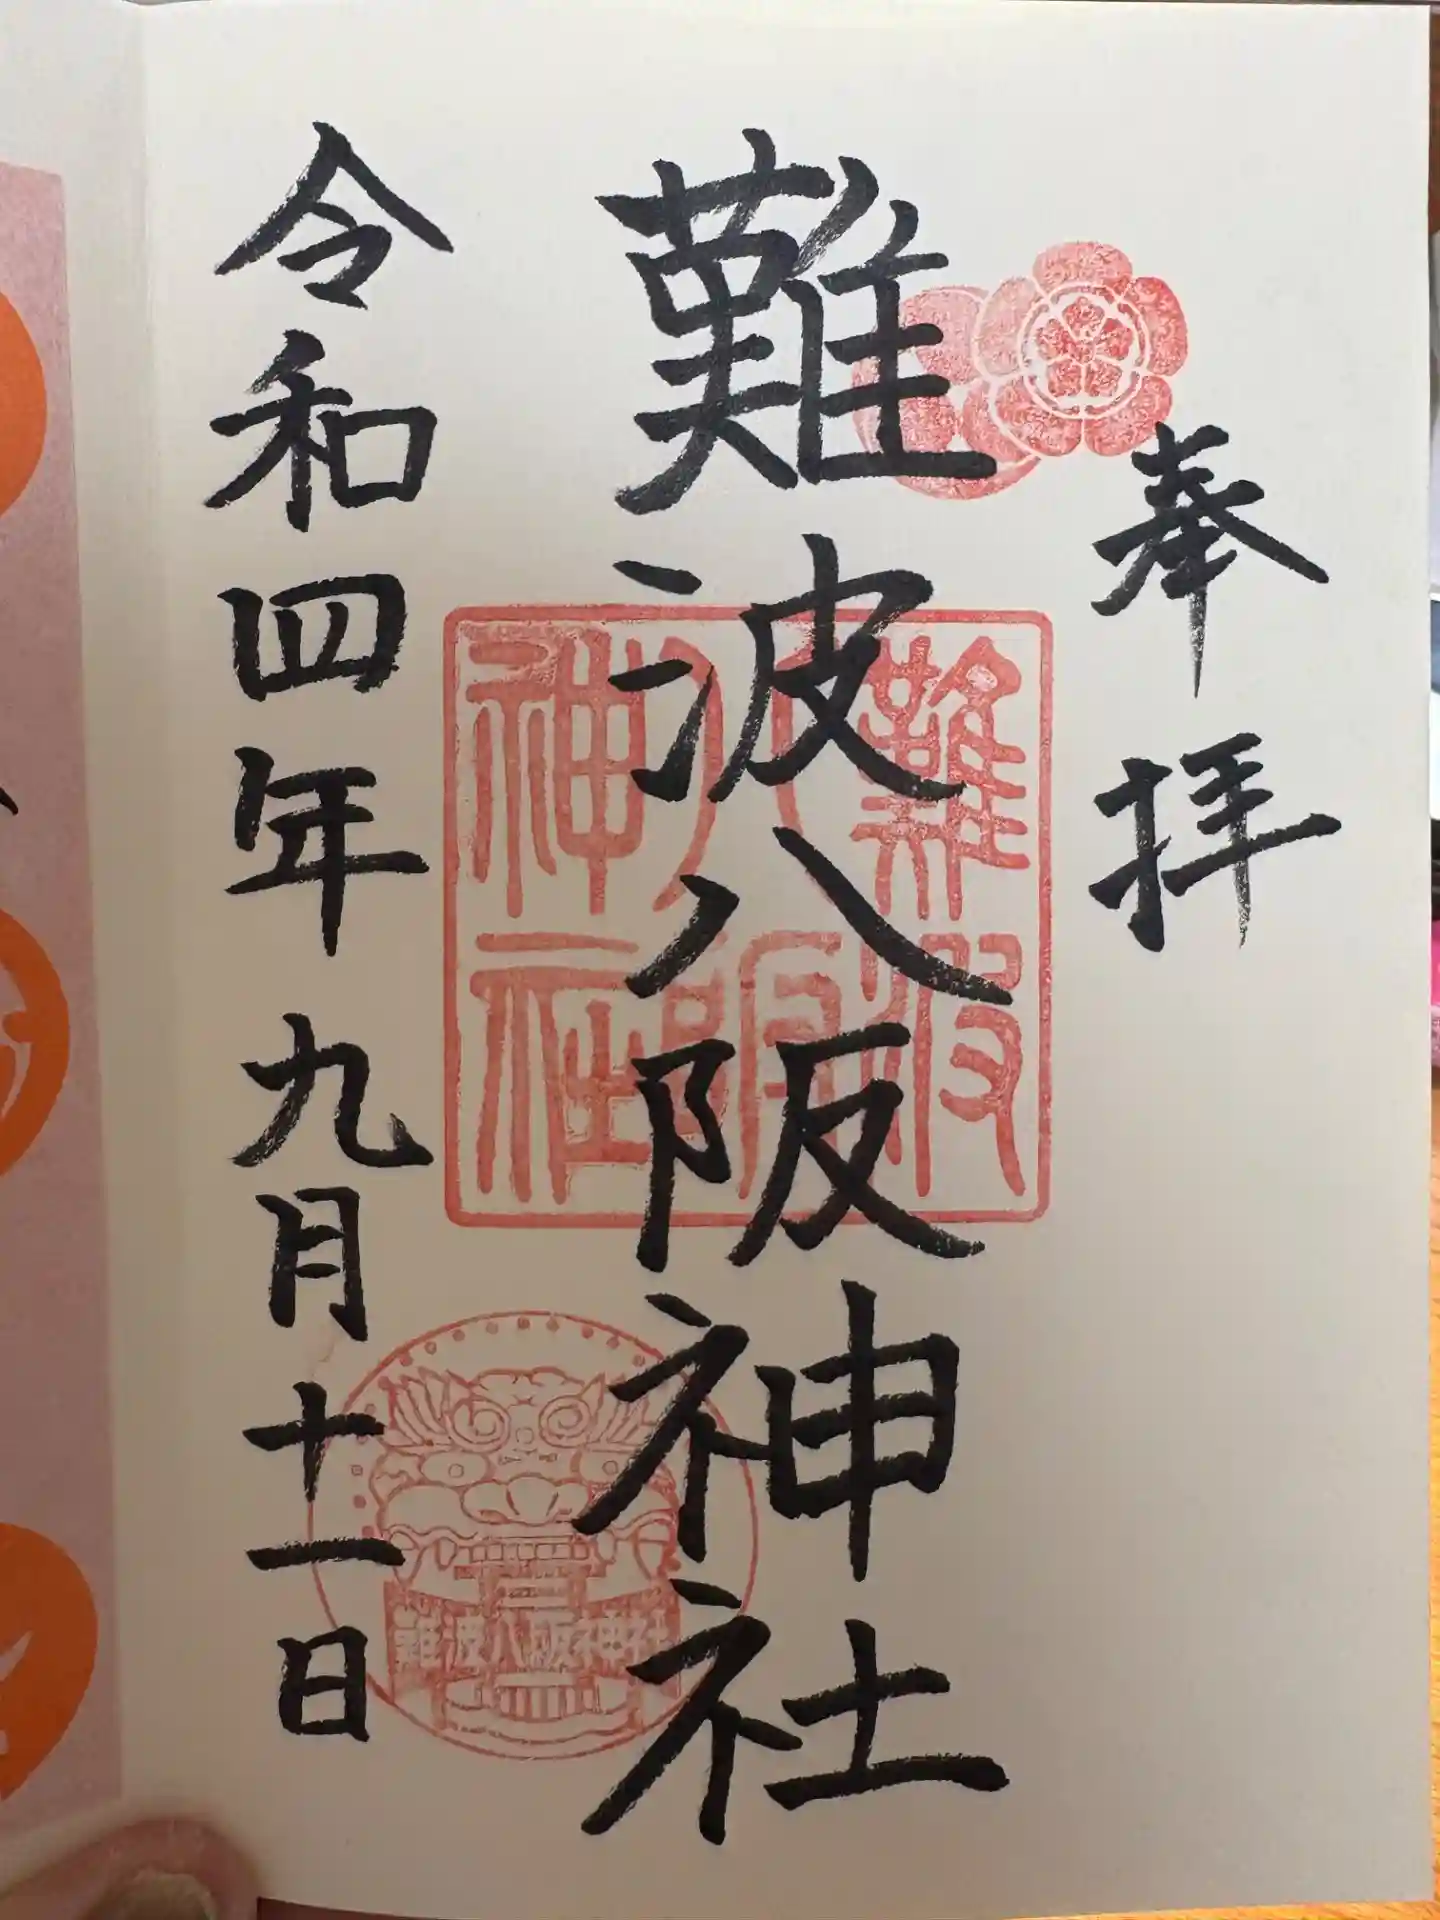 奉拝
難波八阪神社
令和四年九月十一日
難波
八阪
神社
難波八阪神社